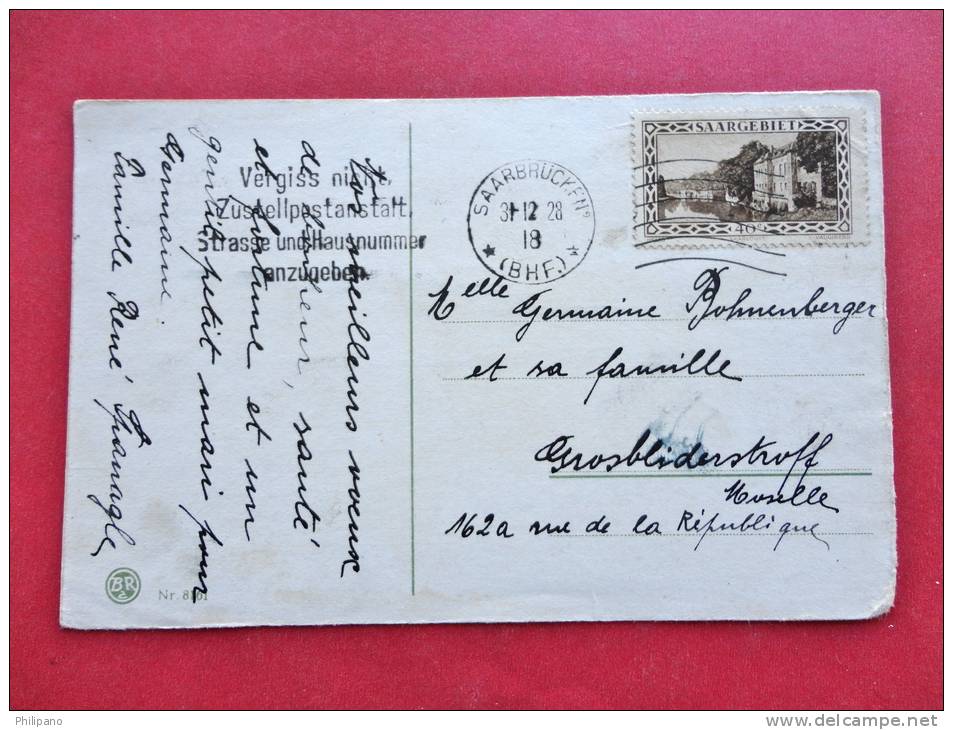 SAARGEBIET
40
SAARBRÜCKEN
31 12 28
18
(BHF.)
Vergiss nicht,
Zustellpostanstalt,
Strasse und Hausnummer
anzugeben
Nos meilleurs voeux
de bonheur, santé
et fortune et un
gentil petit mari pour
Germaine.
Famille René
Melle Germaine Bohnenberger
et sa famille
Grosbliderstroff
Moselle
162a rue de la République
BR
Nr. 8161
Philipano
www.delcampe.net